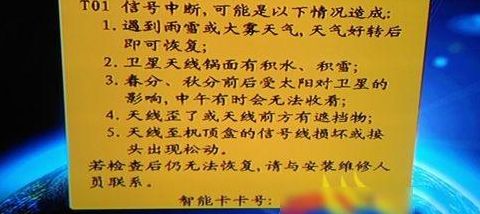 T01 信号中断,可能是以下情况造成:
1. 遇到雨雪或大雾天气,天气好转后
即可恢复;
2. 卫星天线锅面有积水、积雪;
3. 春分、秋分前后受太阳对卫星的
影响,中午有时会无法收看;
4. 天线歪了或天线前方有遮挡物;
5. 天线至机顶盒的信号线损坏或接
头出现松动。
若检查后仍无法恢复,请与安装维修人
员联系。
智能卡卡号: